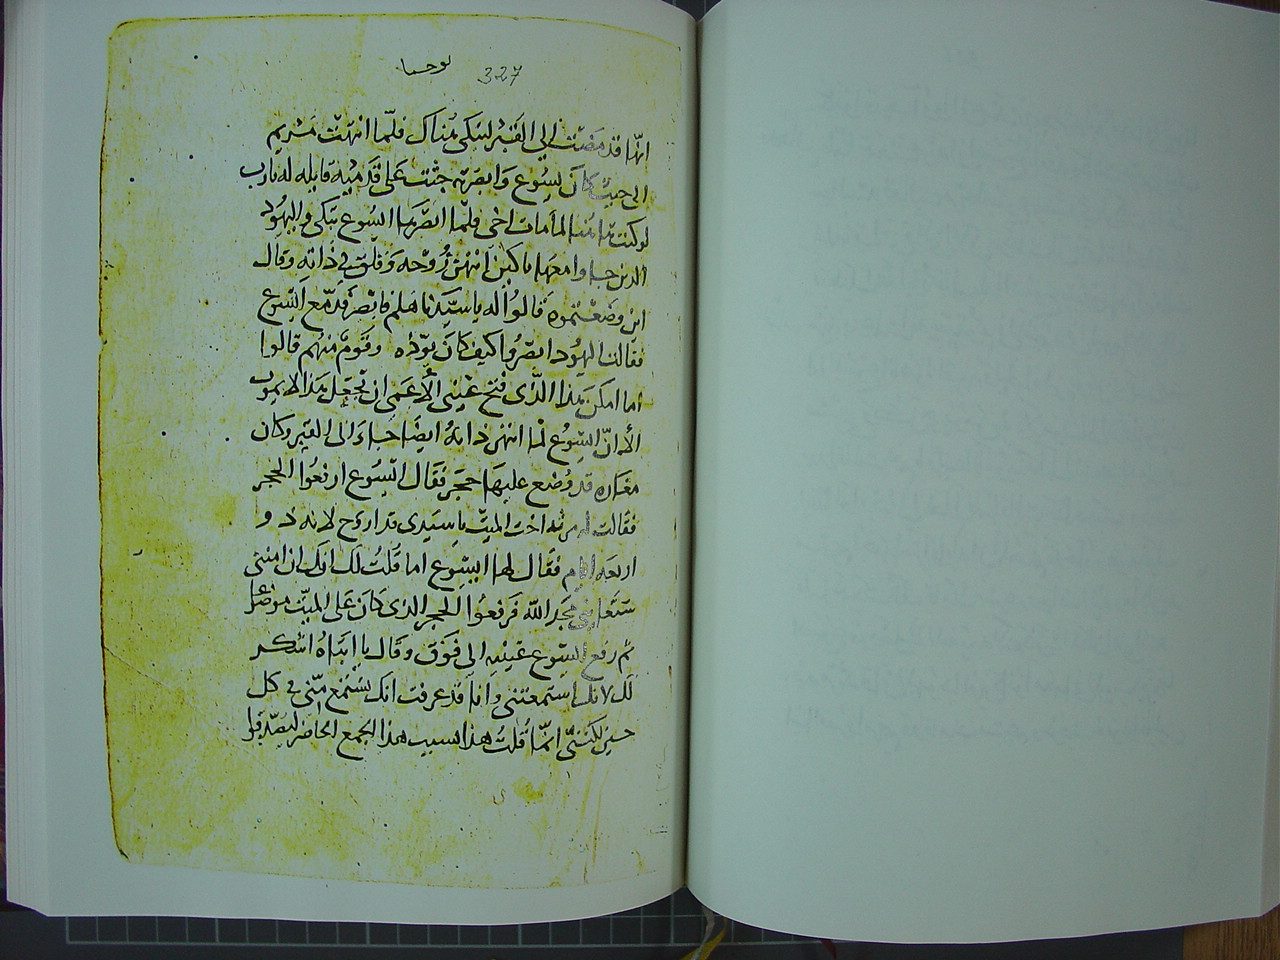 يوحنا 327
انها قد مضت الى القبر لتبكى هناك فلما انتهت مريم
الى حيث كان يسوع وابصرته جثت على قدميه قايله له يا رب
لو كنت هاهنا لما مات اخى فلما ابصرها ايسوع تبكى واليهود
الذين جاوا معها باكين انتهر روحه وقلق فى ذاته وقال
اين وضعتموه قالوا له يا سيدنا هلم فابصر فدمع ايسوع
فقالت اليهود ابصروا كيف كان يودّه وقوم منهم قالوا
اما امكن هذا الذى فتح عينى الاعمى ان يجعل هذا لا يموت
الا ان ايسوع لما انتهر ذاته ايضا جاء الى القبر وكان
مغاره قد وضع عليها حجر فقال ايسوع ارفعوا الحجر
فقالت له مرتا اخت الميت يا سيدى قد اروح لانه ذو
اربعه ايام فقال لها ايسوع اما قلت لك انك ان امنتى
ستعاينى مجد الله فرفعوا الحجر الذى كان على الميت موضوعا
ثم رفع ايسوع عينيه الى فوق وقال يا ابتاه اشكر
لك لانك استمعتنى وانا قد عرفت انك تستمع منى فى كل
حين لكننى انما قلت هذا بسبب هذا الجمع الحاضر ليصدقوا